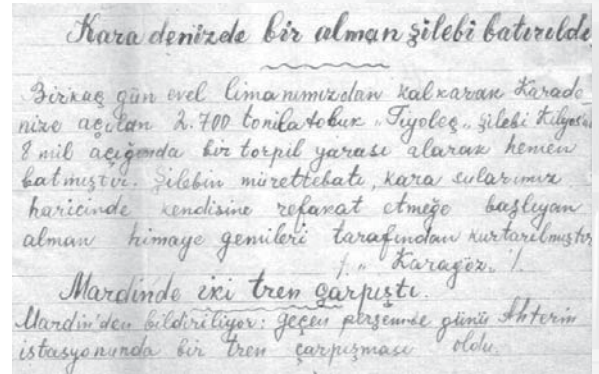 Kara denizde bir alman şilebi batırıldı
Birkaç gün evel limanımızdan kalkarak Karade
nize açılan 2.700 tonilatoluk „Tiyoleç„ şilebi Kilyos'un
8 mil açığında bir torpil yarası alarak hemen
batmıştır. Şilebin mürettebatı, kara sularımız
haricinde kendisine refakat etmeğe başlıyan
alman himaye gemileri tarafından kurtarılmıştır
/. „ Karagöz „ /.
Mardinde iki tren çarpıştı.
Mardin'den bildiriliyor: geçen perşembe günü Ahterin
istasyonunda bir tren çarpışması oldu.